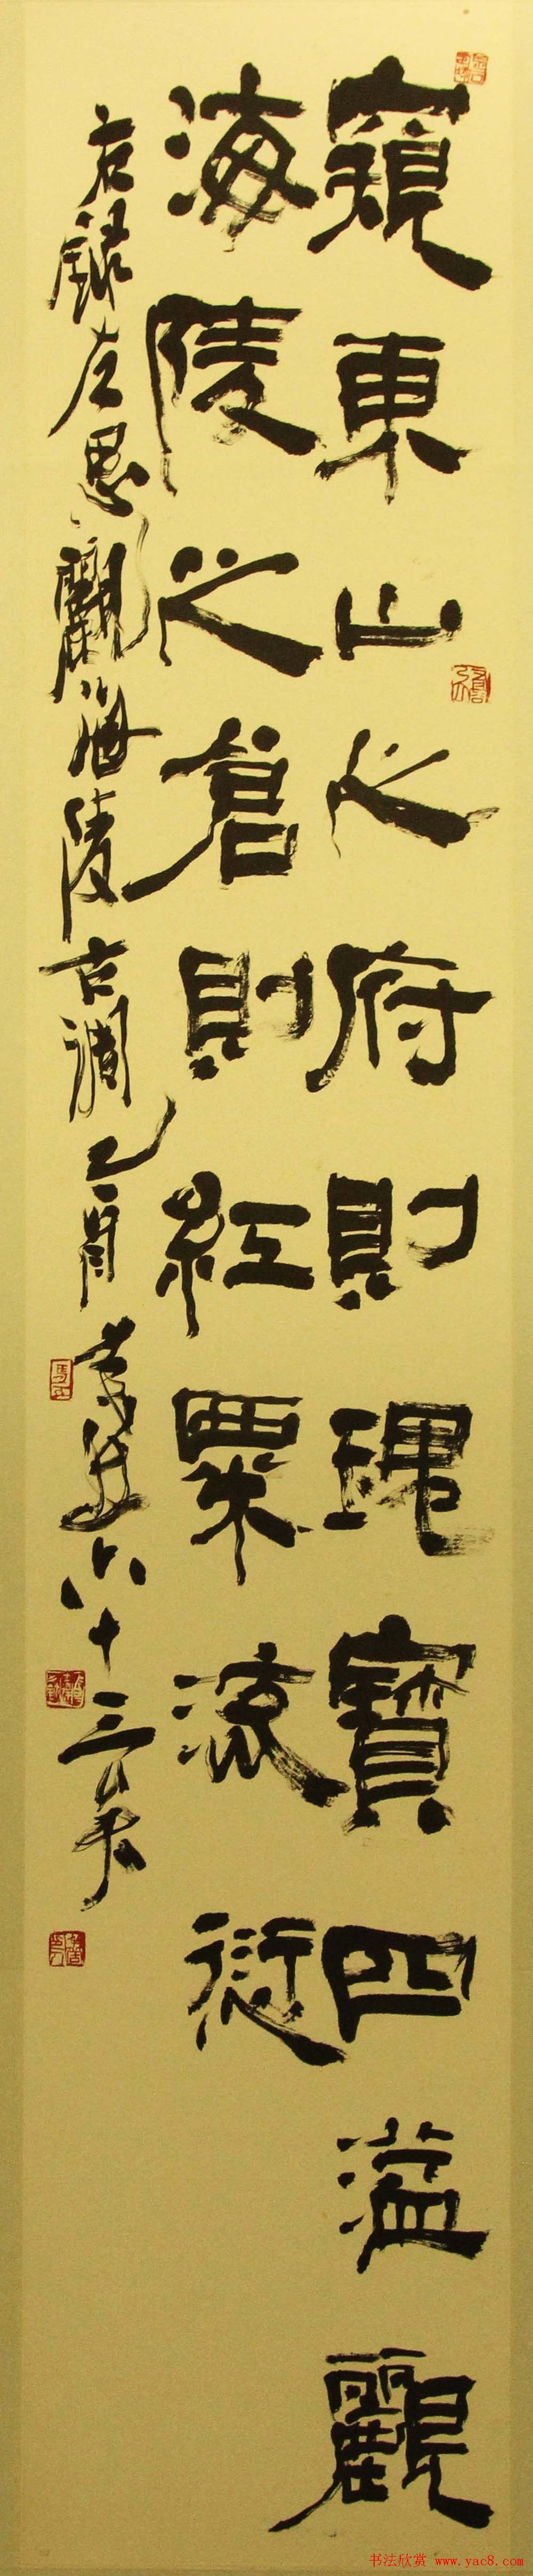 窺東山之府則瑰寶四溢䚕
海陵之倉則紅粟流衍
右錄左思䚕海陵古調乙酉六十三年
书法欣赏 www.yac8.com